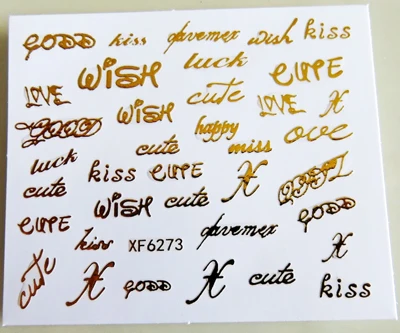 GODD kiss davemex wish kiss
WISH luck CUTE
LOVE WISH cute LOVE H
GOOD cute happy miss ove
luck kiss CUTE H
cute WISH cute GODD
CUTE kiss XF6273 davemex H
cute H GODD H cute kiss